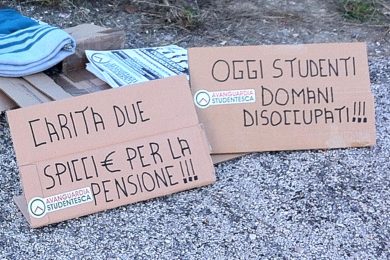 CARITA DUE
SPICCI € PER LA
PENSIONE!!!
AVANGUARDIA
STUDENTESCA
OGGI STUDENTI
DOMANI
DISOCCUPATI!!!
AVANGUARDIA
STUDENTESCA